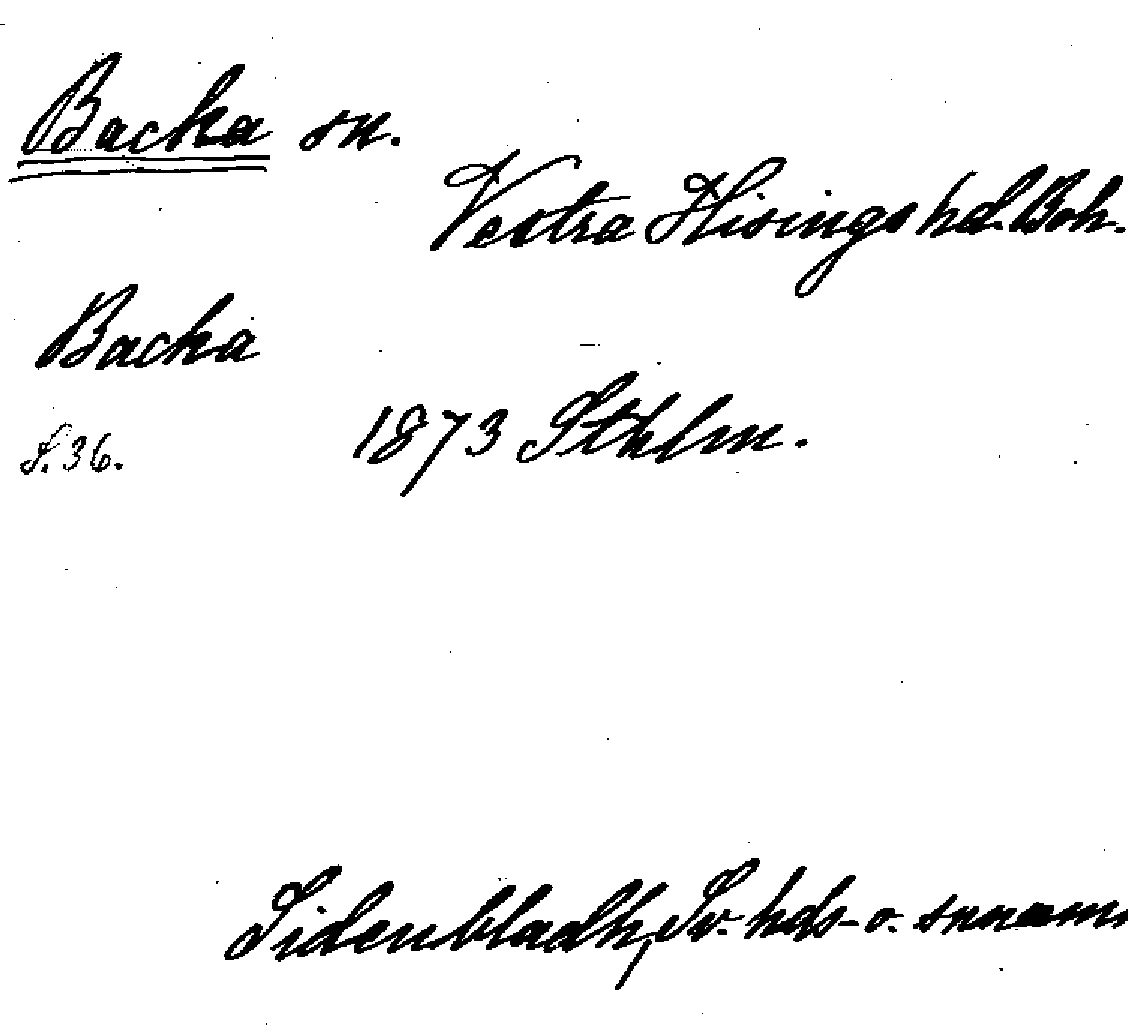 Backa sn.
Vestra Hisings hd. Boh.
Backa
1873 Sthlm.
S. 36.
Sidenbladh, Sv. hds- o. snnamn